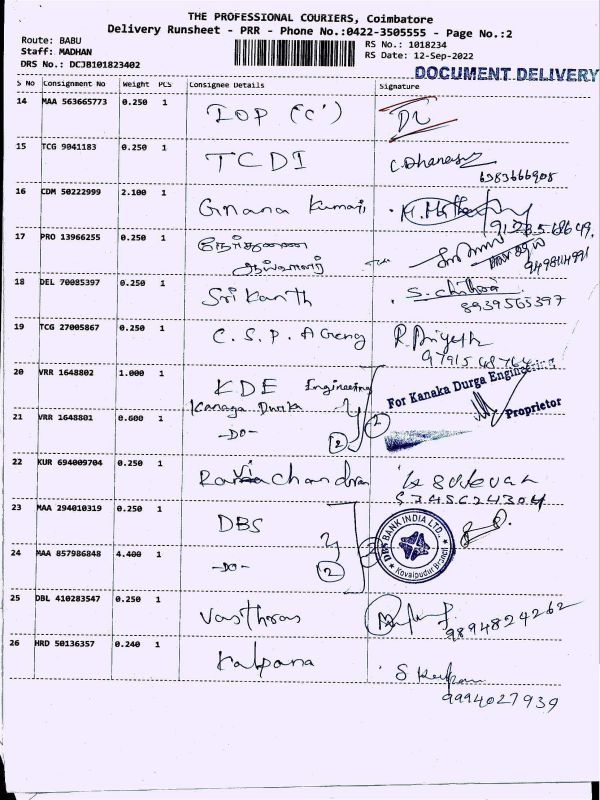 THE PROFESSIONAL COURIERS, Coimbatore
Delivery Runsheet - PRR - Phone No.:0422-3505555 - Page No.:2
Route: BABU
Staff: MADHAN
DRS No.: DCJB101823402
RS No.: 1018234
RS Date: 12-Sep-2022
DOCUMENT DELIVERY
S No Consignment No Weight PCS Consignee Details Signature
14 MAA 563665773 0.250 1 IOP ('C')
15 TCG 9041183 0.250 1 TCDI C. Dhanasu
6383666908
16 CDM 50222999 2.100 1 Gnana Kumari
17 PRO 13966255 0.250 1
18 DEL 70085397 0.250 1 Srikanth S. chithra
8939565397
19 TCG 27005867 0.250 1 C. S. P. Agency R. Priyesh
20 VRR 1648802 1.000 1 KDE Engineering
Kanaga Durka
For Kanaka Durga Engineering
Proprietor
21 VRR 1648801 0.600 1 -DO- 2 2
22 KUR 694009704 0.250 1 Ravi Chandran
23 MAA 294010319 0.250 1 DBS
DBS BANK INDIA LTD.
Kovaipudur Branch
24 MAA 857986848 4.400 1 -DO- 2 2
25 DBL 410283547 0.250 1 Vasthras
9894824262
26 HRD 50136357 0.240 1 Kalpana S Kalpana
9994027939